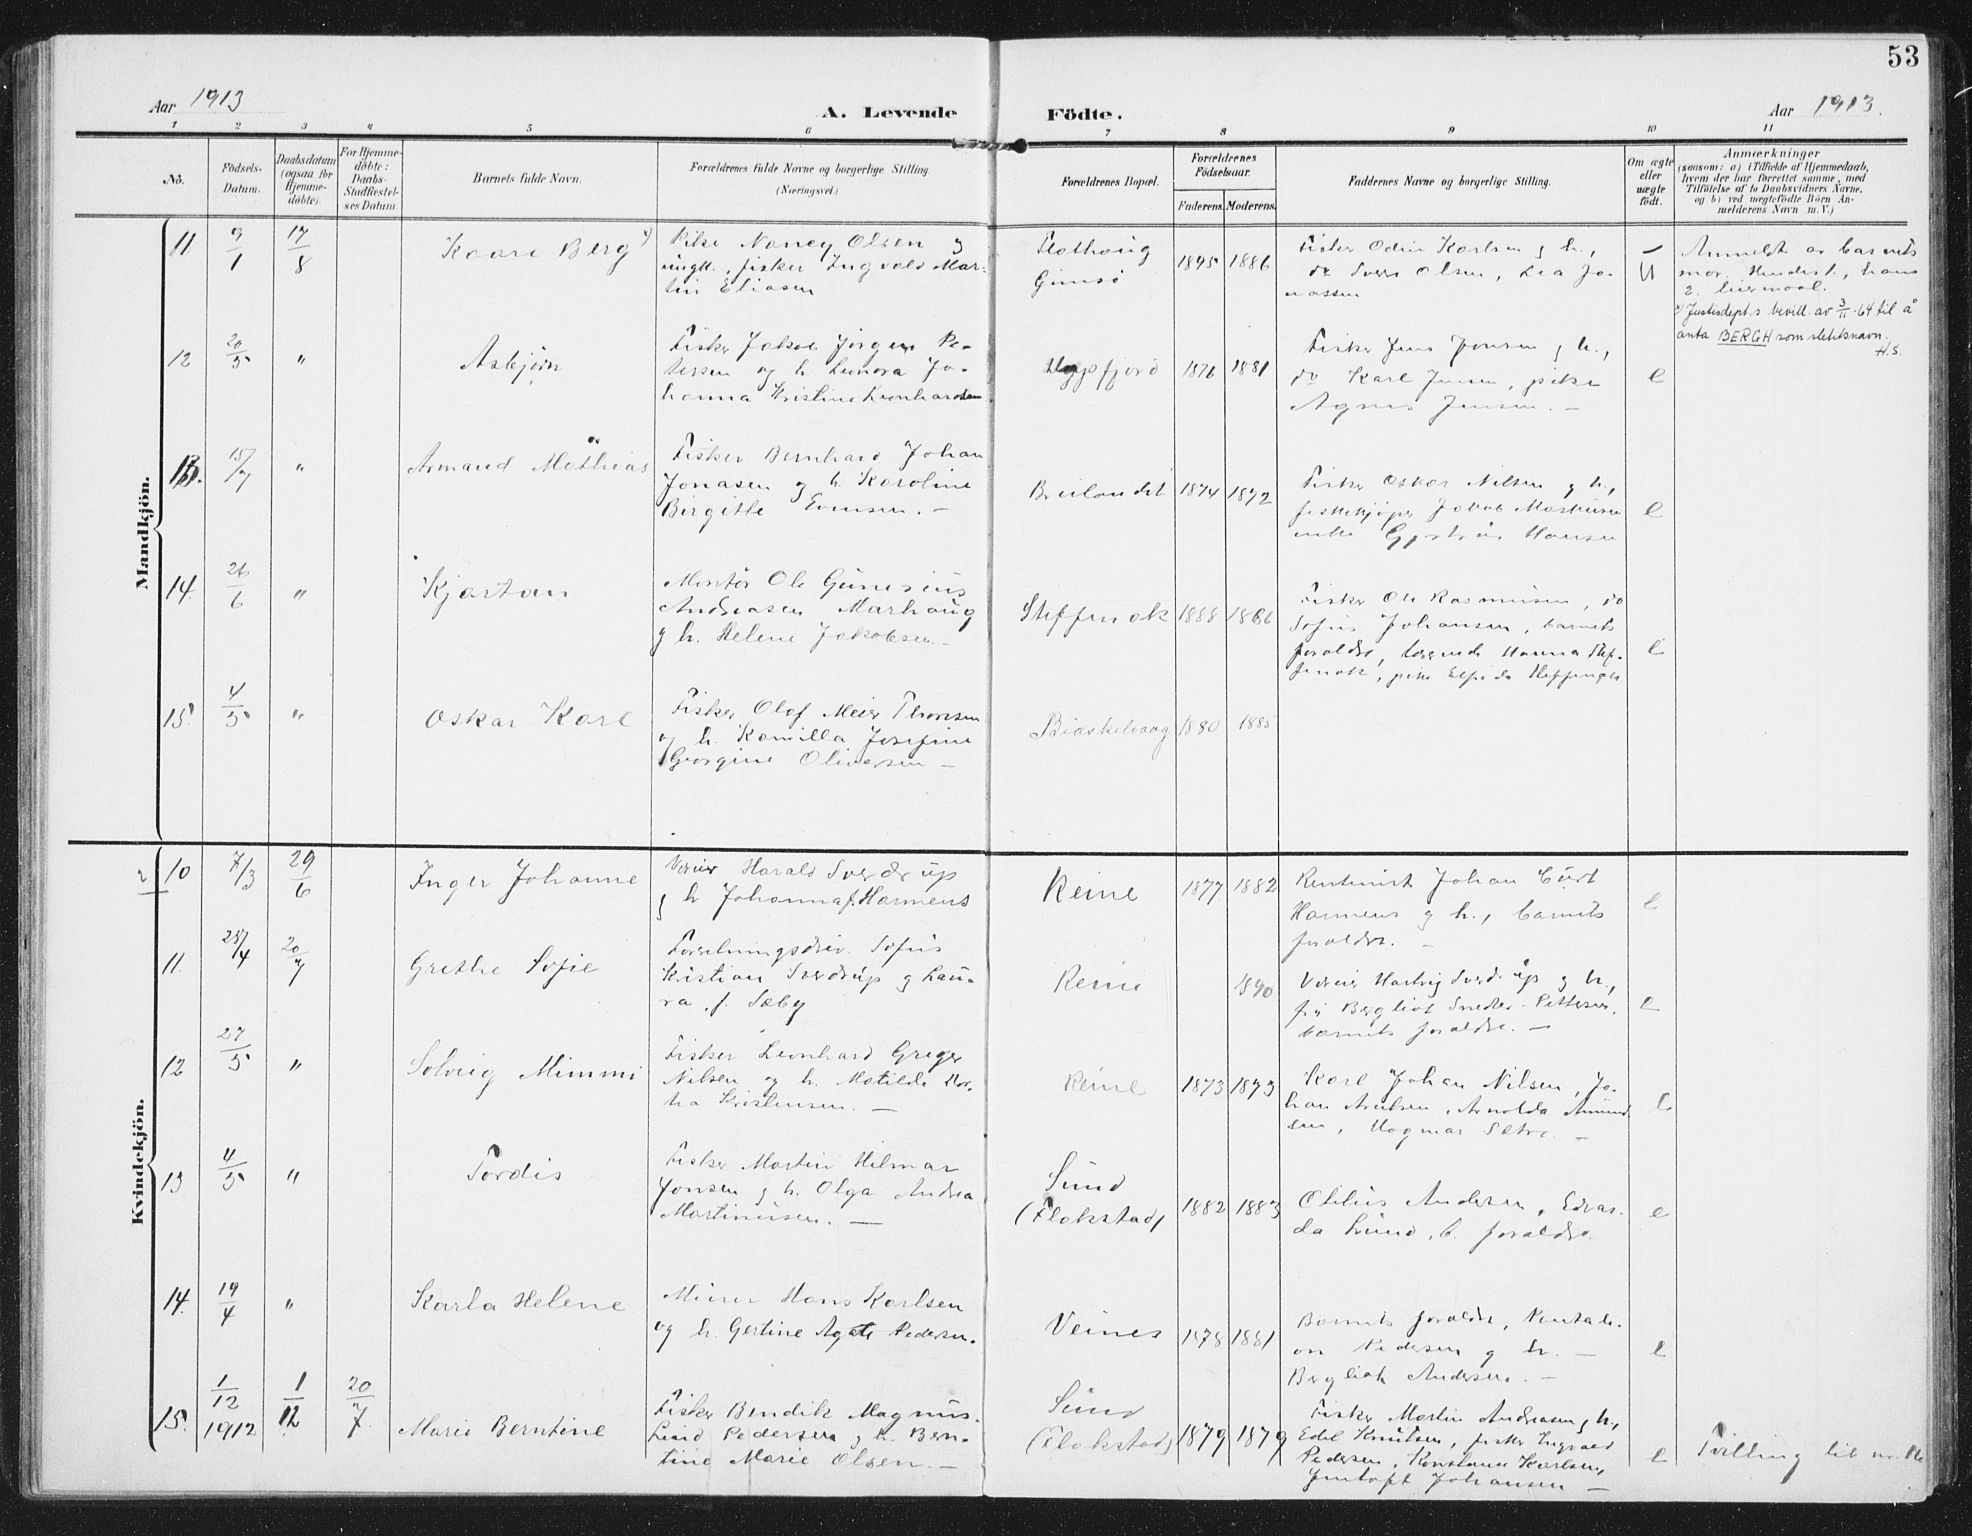 53
Aar 1913
A. Levende
Födte.
Aar 1913.
1 2 3 4 5 6 7 8 9 10 11
No.
Födsels-
Datum.
Daabsdatum
(ogsaa for
Hjemme-
döbte).
For Hjemme-
döbte:
Daabs-
Stadfæstel-
ses Datum
Barnets fulde Navn.
Forældrenes fulde Navne og borgerlige Stilling
(Næringsvei.)
Forældrenes Bopæl.
Forældrenes
Födselsaar.
Faderens. Moderens.
Faddernes Navne og borgerlige Stilling.
Om ægte
eller
uægte
födt.
Anmærkninger
(saasom: a) i Tilfælde af Hjemmedaab,
hvem der har forrettet samme, med
Tilföielse af to Daabsvidners Navne,
og b) ved uægtefödte Börn An-
melderens Navn m. V.)
Mandkjön.
11
9/1
17/8
Kaare Berg x)
Pike Nancy Olsen og
ungk., fisker Ingvald Mar-
tin Eliasen
Flathaug
Gimsö
1895 1886
Fisker Odin Karlsen og h.,
do Sverre Olsen, Lea Jo-
nassen
U
Anmeldt av barnets
mor. Hendes 1., hans
2. leiermaal.
x) Justisdept.s bevill. av 3/11-64 til å
anta BERGH som slektsnavn.
H.S.
12
20/5
"
Asbjörn
Fisker Jakob Jörgen Pe-
tersen og h. Leonora Jo-
hanna Kristine Leonhardsen
1876 1881
Fisker Jens Jensen og h.,
do Karl Jensen, pike
Agnes Jensen. —
e
13.
15/7
"
Armand Mathias
Fisker Bernhard Johan
Jonasen og h. Karoline
Birgitte Evensen. —
Breilandet
1874 1872
Fisker Oskar Nilsen og h.,
fiskekjöper Jakob
enke Hansen
e
14.
26/6
"
Kjartan
Montör Ole Gunerius
Andreasen Marhaug
og h. Helene Jakobsen. —
Steffenak
1888 1886
Fisker Ole Rasmussen, do
Sofus Johansen, barnets
foraldre, Hanna Stef-
fenak, pike Steffenak
e
15.
4/5
"
Oskar Karl
Fisker Olaf Meier Thomsen
og h. Kamilla Josefine
Georgine Oliversen —
1880 1885
Kvindekjön.
10
7/3
29/6
Inger Johanne
Værier Harald Sverdrup
og h Johanna f. Harmens
Reine
1877 1882
Rentenist Johan Curt
Harmens og h., barnets
foraldre. —
e
11.
28/4
20/7
Grethe Sofie
Forretningsdriv. Sofus
Kristian Sverdrup og Lau-
ra, f. Sæby
Reine
1890
Værier Hartvig Sverdrup og h.,
fru Bergliot Pettersen,
barnets foraldre. —
e
12
27/5
"
Solveig Mimmi
Fisker Leonhard Greger
Nilsen og h. Matilde Mar-
tha Kristensen. —
Reine
1873 1873
Karl Johan Nilsen, Jo-
han Arntsen, Arnolda Amund-
sen, Dagmar Sletvo. —
e
13
4/5
"
Tordis
Fisker Martin Hilmar
Jonsen og h. Olga Andrea
Martinusen. —
Sund
(Flakstad)
1882 1883
Andersen, Edvar-
da Lund, b. foraldre.
e
14.
19/4
"
Karla Helene
Hans Karlsen
og h. Gertine Agate Pedersen.
Veines
1878 1881
Barnets foraldre,
Pedersen og h. —
Bergliot Andersen. —
e
15.
1/12
1912
1/12
20/7.
Marie Berntine
Fisker Bendik Magnus
Lind Pedersen og h. Bern-
tine Marie Olsen. —
Sund
(Flakstad)
1879 1879
Fisker Martin Andreasen og h.,
Edel Knutsen, fisker Ingvald
Pedersen, Konstanse Karlsen,
Johansen —
e
Tvilling til nr.